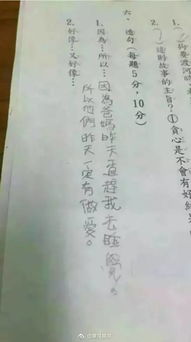 1.
2. 故事的主旨？①貪心是不會有好結
六、造句（每題5分，10分）
1. 因為…所以…因為爸媽昨天一直趕我去睡覺。
所以他們昨天一定有做愛。
2. 好像…又好像…